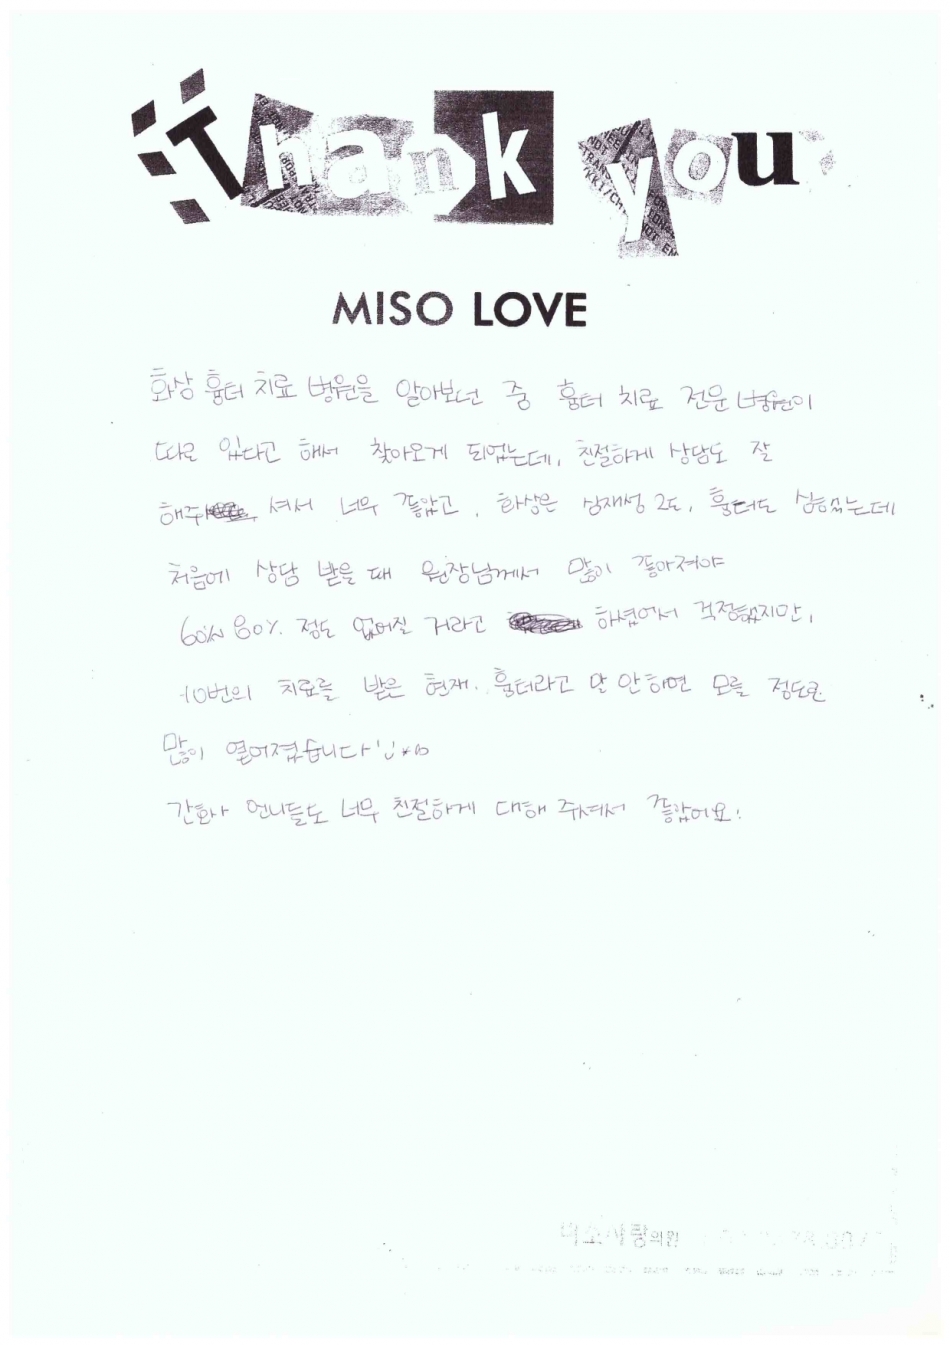 Thank you
MISO LOVE
화상 흉터 치료 병원을 알아보던 중 흉터 치료 전문 병원이
따로 있다고 해서 찾아오게 되었는데, 친절하게 상담도 잘
해주셔서 너무 좋았고, 화상은 심재성 2도, 흉터도 심했는데
처음에 상담 받을 때 원장님께서 많이 좋아져야
60%~80% 정도 없어질 거라고 하셨어서 걱정했지만,
10번의 치료를 받은 현재. 흉터라고 말 안하면 모를 정도로
많이 옅어졌습니다
간호사 언니들도 너무 친절하게 대해 주셔서 좋았어요!
미소사랑의원